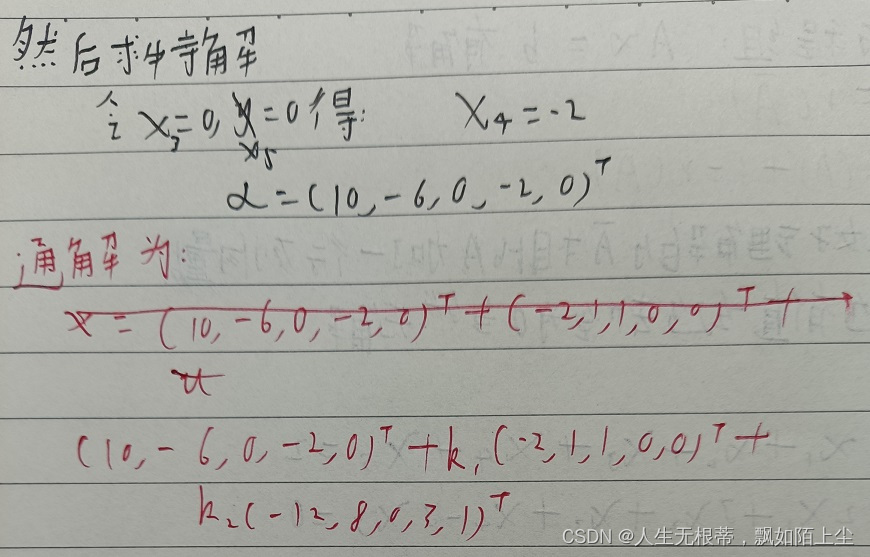 然后求特解
令 x₃=0, x₅=0 得: x₄=-2
α=(10,-6,0,-2,0)ᵀ
通解为:
x=(10,-6,0,-2,0)ᵀ+(-2,1,1,0,0)ᵀ+
(10,-6,0,-2,0)ᵀ+k₁(-2,1,1,0,0)ᵀ+
k₂(-12,8,0,3,1)ᵀ
CSDN @人生无根蒂，飘如陌上尘